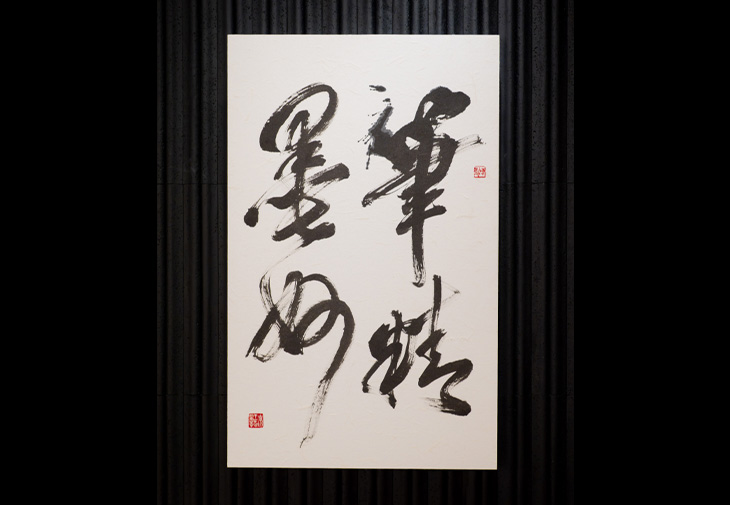 筆精
墨妙